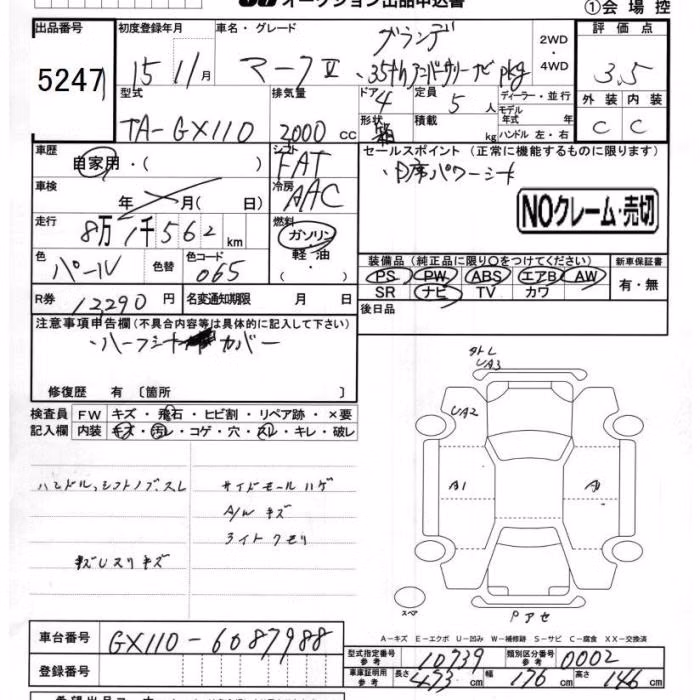 オークション出品申込書
①会場控
出品番号 初度登録年月 車名・グレード グランデ 2WD・4WD 評価点
5247 15 11月 マークⅡ 35th pkg 3.5
型式 排気量 ドア 4 定員 5人 ディーラー・並行 外装 内装
TA-GX110 2000cc 形状 箱 積載 kg モデル年式 年 ハンドル 左・右 C C
車歴 自家用・( ) シフト FAT セールスポイント (正常に機能するものに限ります)
車検 年 月( 日) 冷房 AAC パワーシート
走行 8万1千562km 燃料 ガソリン・軽油・( ) NOクレーム・売切
色 パール 色替 色コード 065 装備品 (純正品に限り○をつけてください) 新車保証書
PS PW ABS エアB AW 有・無
SR ナビ TV カワ
R券 12290円 名変通知期限 月 日 後日品
注意事項申告欄(不具合内容等は具体的に記入して下さい)
・ハーフシートカバー
修復歴 有 〔箇所 〕
検査員 FW キズ・飛石・ヒビ割・リペア跡・×要
記入欄 内装 キズ・汚レ・コゲ・穴・スレ・キレ・破レ
UA3
UA2
A1 A1
ハンドル、シフトノブ、スレ サイドモールハゲ
A/W キズ
ライトクモリ
スペア
Pアセ
A-キズ E-エクボ U-凹み W-補修跡 S-サビ C-腐食 XX-交換済
車台番号 GX110-6087988
型式指定番号 参考 10739 類別区分番号 参考 0002
登録番号
車庫証明用 参考 長さ 473cm 幅 176cm 高さ 146cm